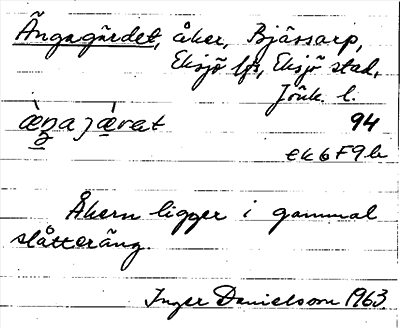 Ängagärdet, åker, Bjässarp,
Eksjö lfs, Eksjö stad,
Jönk. l.
94
ek6F9b
Åkern ligger i gammal
slåtteräng.
Inger Danielsson 1963